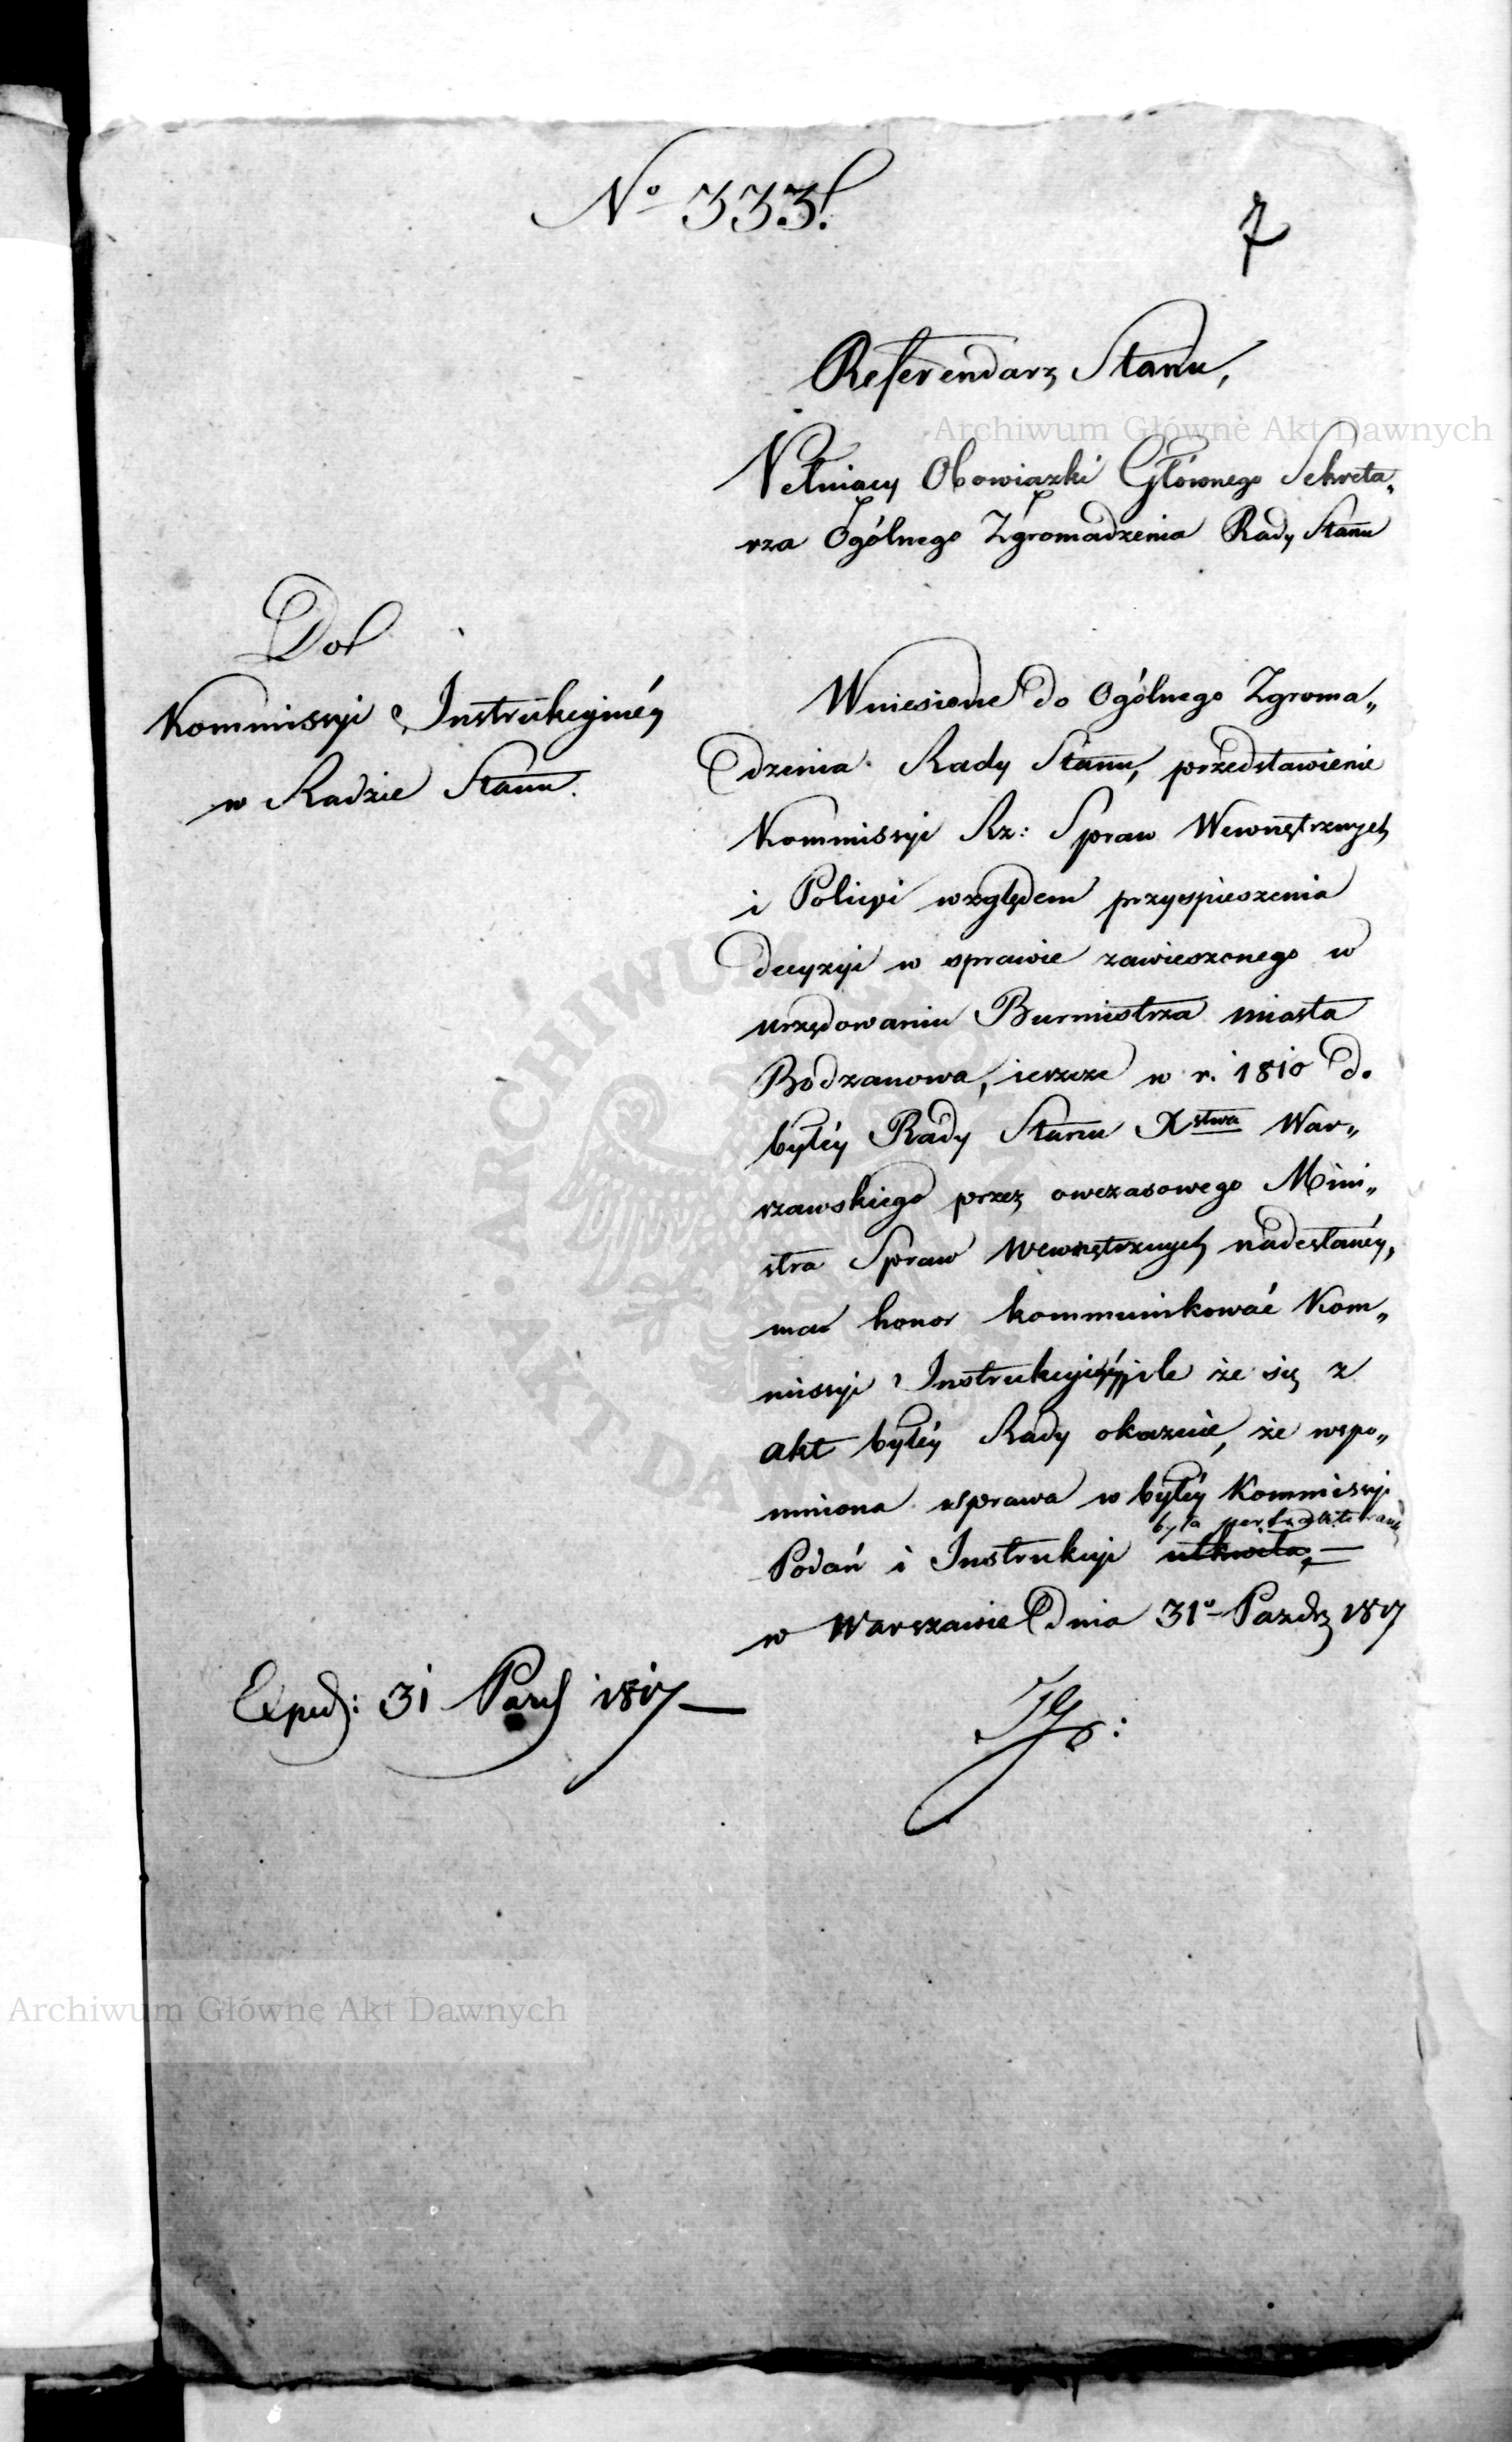 No 333.
7
Referendarz Stanu,
Pełniący Obowiązki Głównego Sekreta„
rza Ogólnego Zgromadzenia Rady Stanu
Do
Kommissyi Instrukcyinéy
w Radzie Stanu.
Wniesione do Ogólnego Zgroma„
dzenia Rady Stanu, przedstawienie
Kommissyi Rz: Spraw Wewnętrznych
i Policyi względem przyspieszenia
decyzyi w sprawie zawieszonego w
urzędowaniu Burmistrza miasta
Bodzanowa, ieszcze w r. 1810 do
byłéy Rady Stanu Xstwa War„
szawskiego przez owczasowego Mini„
stra Spraw Wewnętrznych nadesłanéy,
ma honor kommunikować Kom„
missyi Instrukcyinéy, ile że się z
akt byłéy Rady okazuie, że wspo„
mniona sprawa w byłéy Kommissyi
była
Podań i Instrukcyi utkwiła, —
w Warszawie dnia 31o Pazdrz 1817
Exped: 31 Pazd 1817 —
Archiwum Główne Akt Dawnych
ARCHIWUM GŁÓWNE AKT DAWNYCH
Archiwum Główne Akt Dawnych